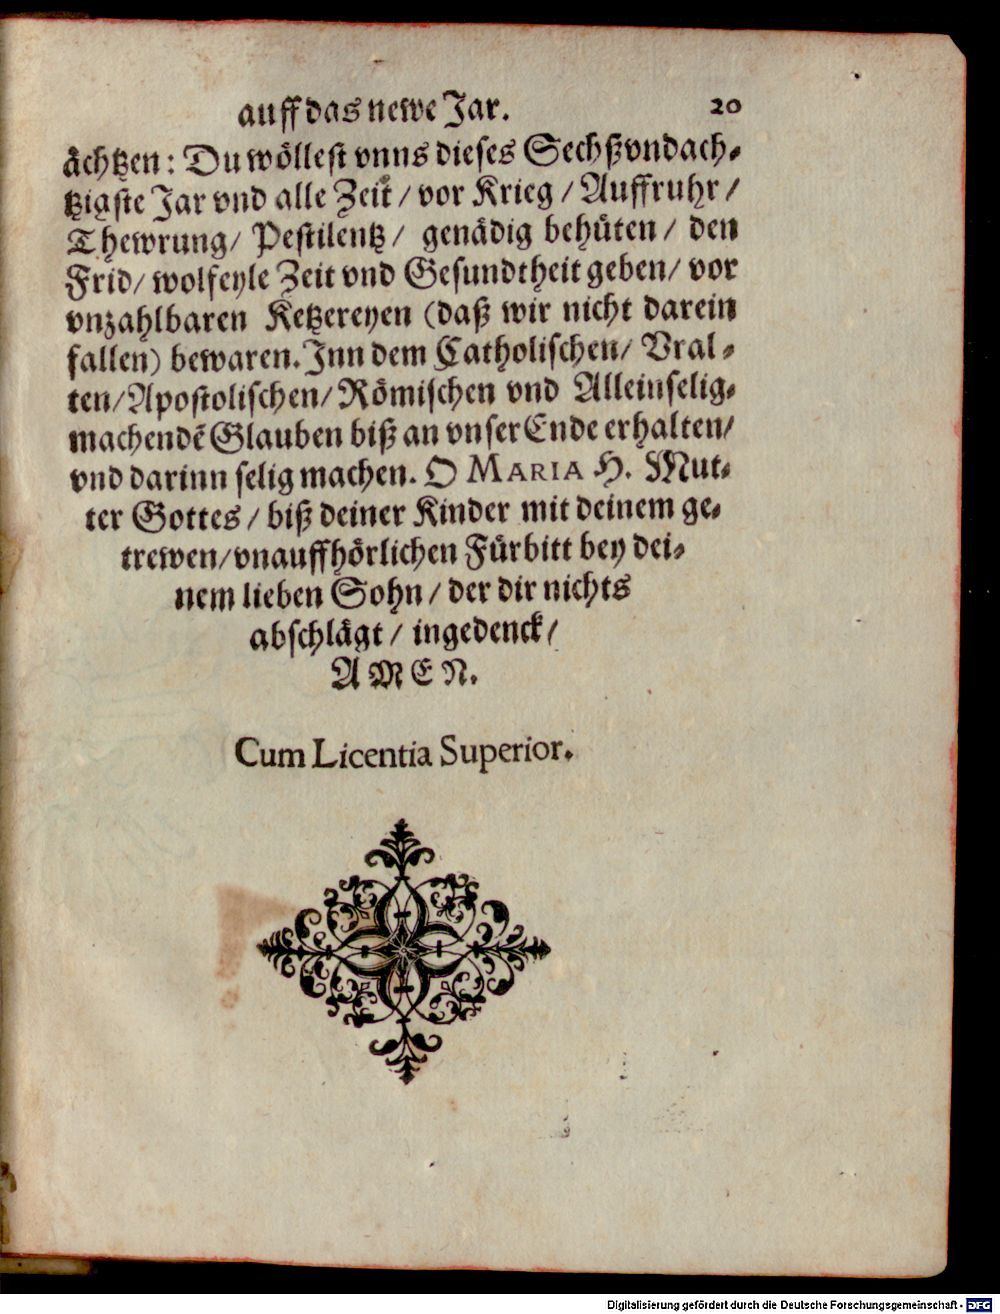 auff das newe Jar. 20
ächtzen: Du wöllest vnns dieses Sechßvndach-
tzigste Jar vnd alle Zeit / vor Krieg / Auffruhr /
Thewrung / Pestilentz / genädig behüten / den
Frid / wolfeyle Zeit vnd Gesundtheit geben / vor
vnzahlbaren Ketzereyen (daß wir nicht darein
fallen) bewaren. Jnn dem Catholischen / Vral-
ten / Apostolischen / Römischen vnd Alleinselig-
machendē Glauben biß an vnser Ende erhalten /
vnd darinn selig machen. O MARIA H. Mut-
ter Gottes / biß deiner Kinder mit deinem ge-
trewen / vnauffhörlichen Fürbitt bey dei-
nem lieben Sohn / der dir nichts
abschlägt / ingedenck /
AMEN.
Cum Licentia Superior.
Digitalisierung gefördert durch die Deutsche Forschungsgemeinschaft - DFG